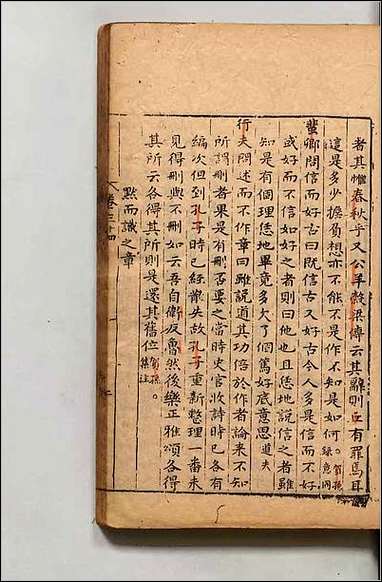 者其惟春秋乎又公羊穀梁傳云其辭則丘有罪焉耳
這是多少擔負想亦不能不是作不知是如何。賀孫錄意同
蜚卿問信而好古曰既信古又好古今人多是信而不好
或好而不信如好之者則曰他也且恁地說信之者雖
知是有個理恁地畢竟多欠了個篤好底意思道夫
行夫問述而不作章曰雖說道其功倍於作者論來不知
所謂刪者果是有刪否要之當時史官收詩時已各有
編次但到孔子時已經散失故孔子重新整理一番未
見得刪與不刪如云吾自衛反魯然後樂正雅頌各得
其所云各得其所則是還其舊位賀孫。集注
默而識之章
卷三十四